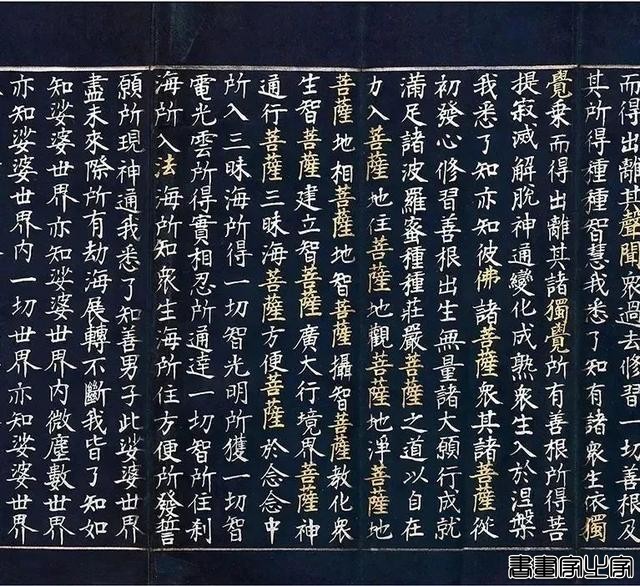 而得出離其聲聞眾過去修習一切善根及
其所得種種智慧我悉了知有諸眾生依獨
覺乘而得出離其諸獨覺所有善根所得菩
提寂滅解脫神通變化成熟眾生入於涅槃
我悉了知亦知彼佛諸菩薩眾其諸菩薩從
初發心修習善根出生無量諸大願行成就
滿足諸波羅蜜種種莊嚴菩薩之道以自在
力入菩薩地住菩薩地觀菩薩地淨菩薩地
菩薩地相菩薩地智菩薩攝智菩薩教化眾
生智菩薩建立智菩薩廣大行境界菩薩神
通行菩薩三昧海菩薩方便菩薩於念念中
所入三昧海所得一切智光明所獲一切智
電光雲所得實相忍所通達一切智所住剎
海所入法海所知眾生海所住方便所發誓
願所現神通我悉了知善男子此娑婆世界
盡未來際所有劫海展轉不斷我皆了知如
知娑婆世界亦知娑婆世界內微塵數世界
亦知娑婆世界內一切世界亦知娑婆世界